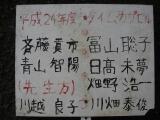 平成24年度 タイムカプセル
斉藤貴市 富山聡子
青山智陽 日髙未夢
(先生方) 畑野浩一
川越良子 川畑泰俊